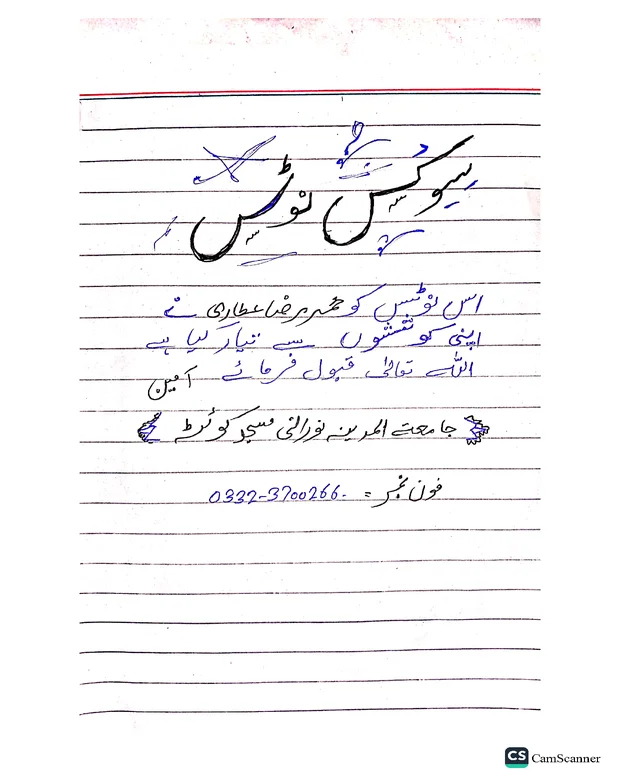 سوکس نوٹس
اس نوٹس کو محمد رضا عطاری نے
اپنی کوششوں سے تیار کیا ہے
اللہ تعالیٰ قبول فرمائے آمین
جامعۃ المدینہ نورانی مسجد کوئٹہ
فون نمبر = 0332-3700266
CS CamScanner